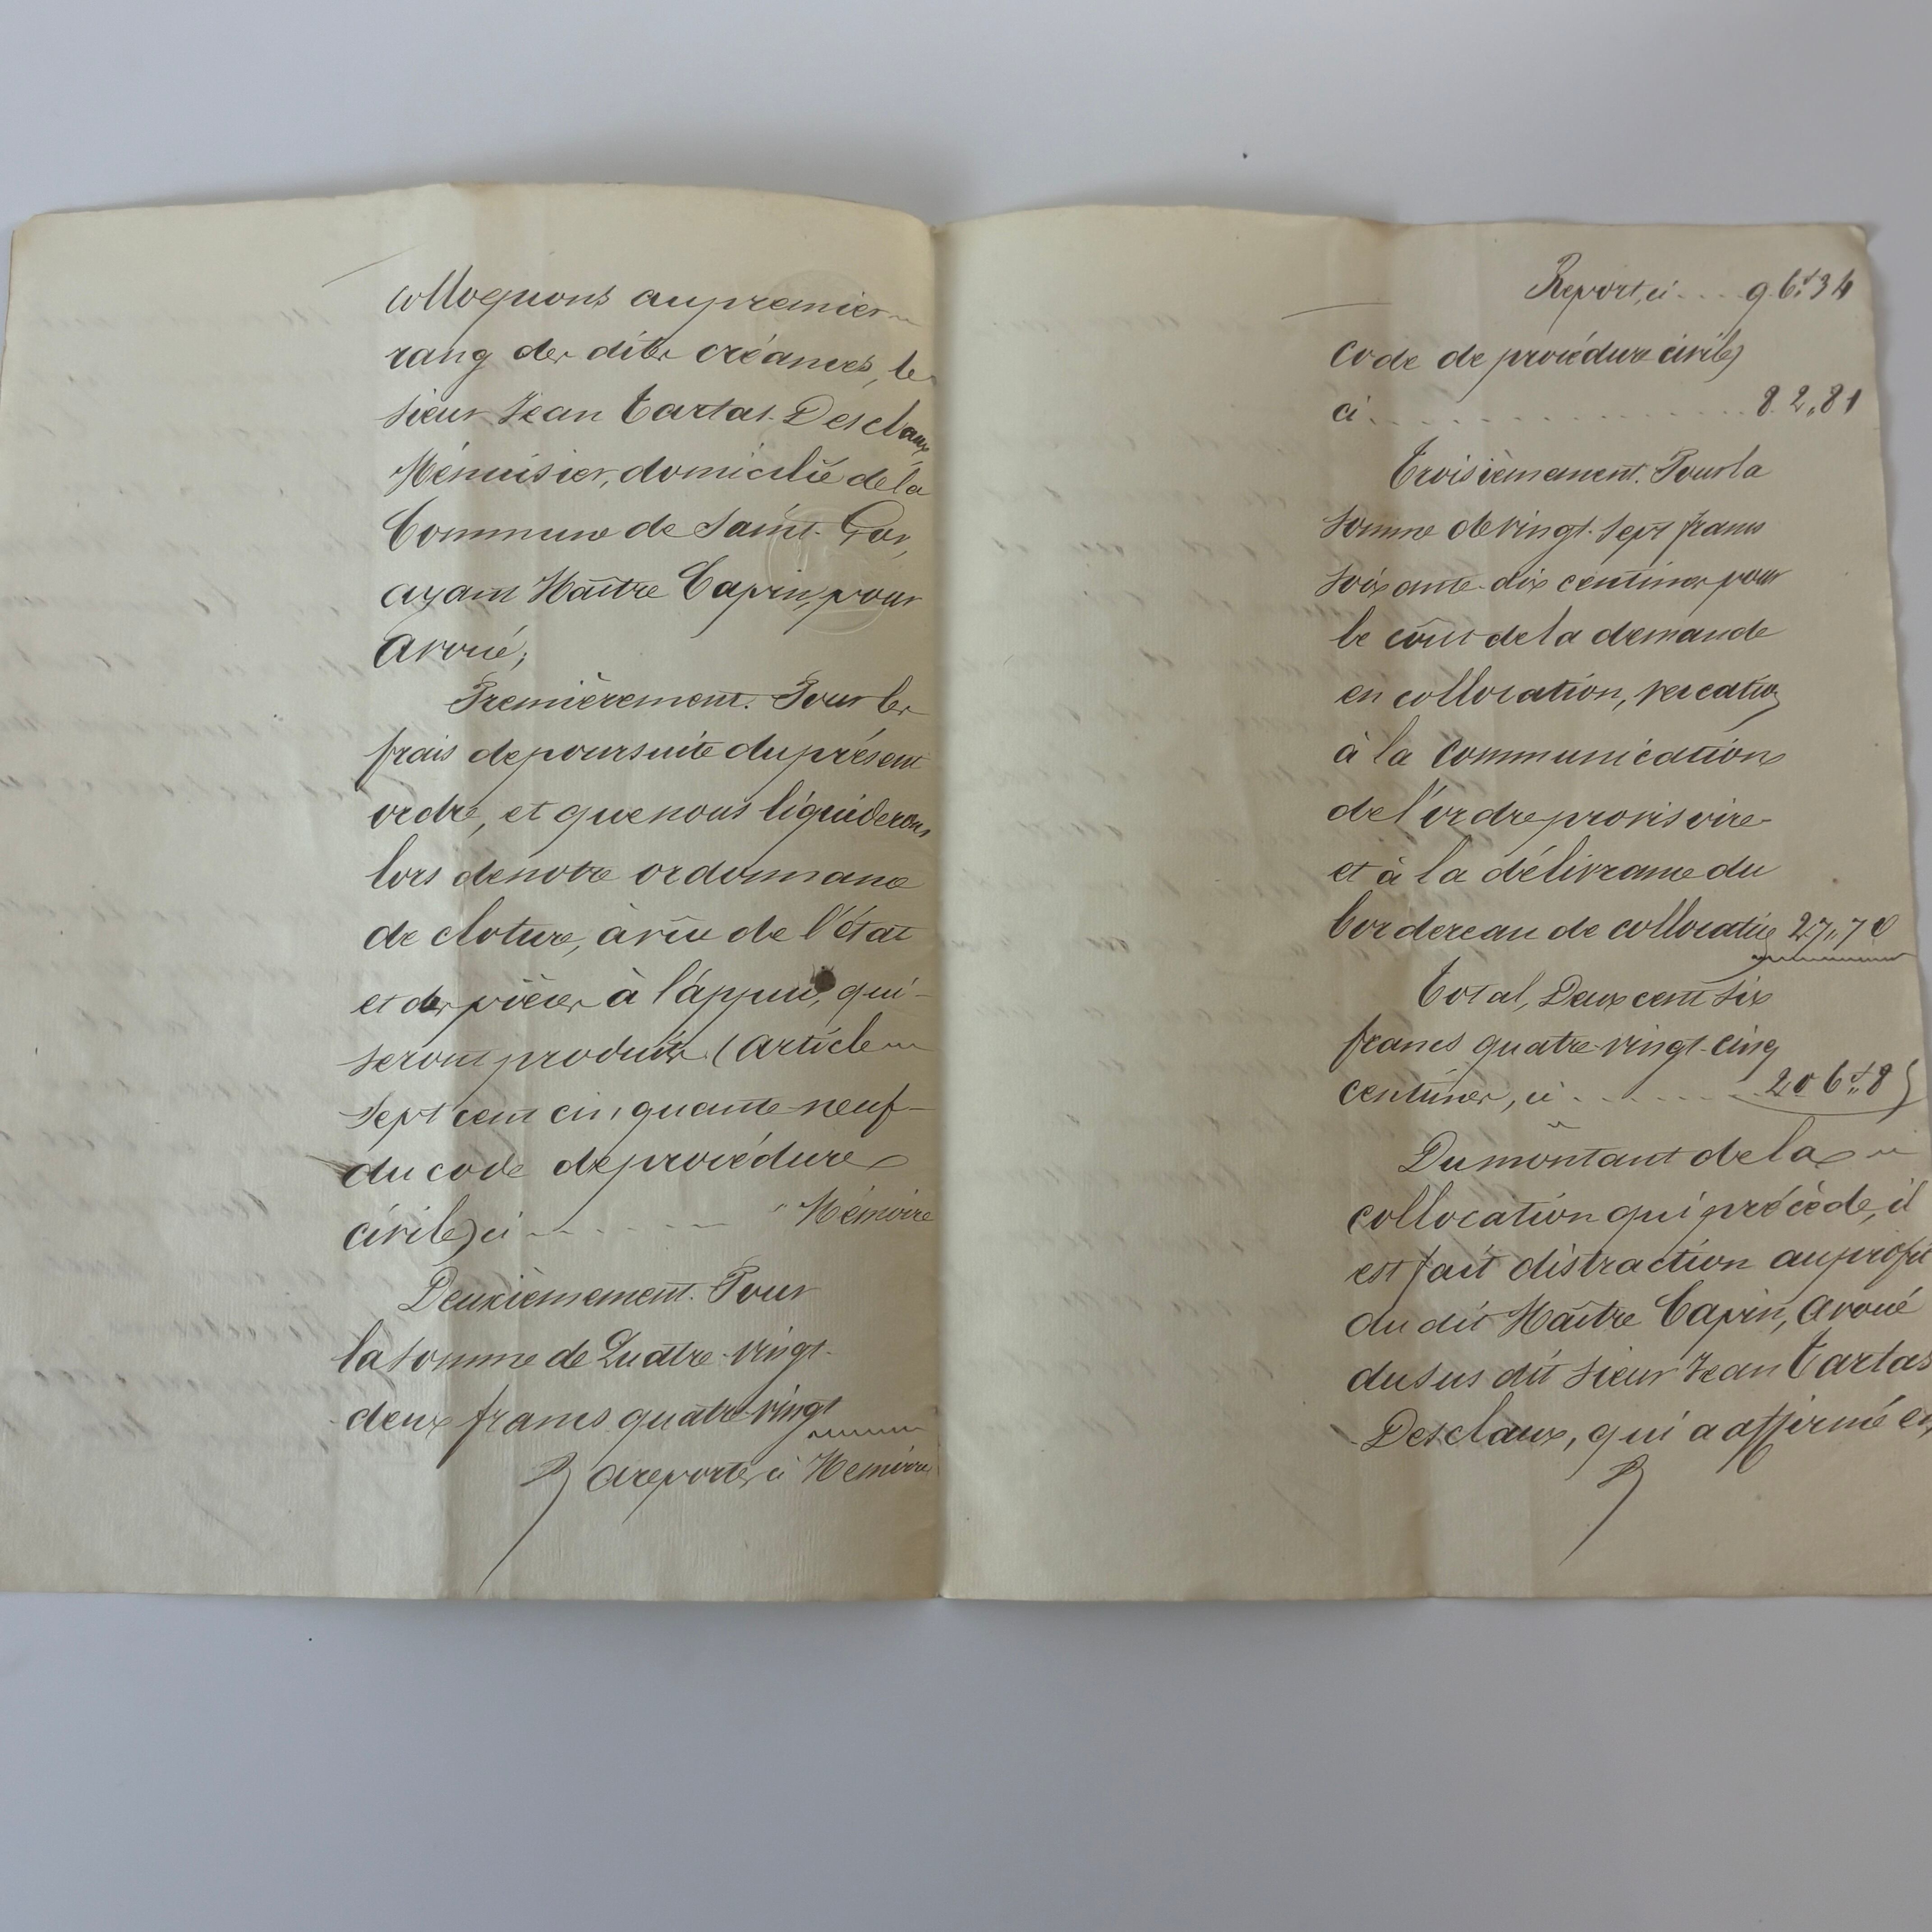 colloquons au premier
rang des dites créances, le
sieur Jean Tartas-Desclaux
Ménuisier, domicilié de la
Commune de Saint-Gor,
ayant Maître Capin, pour
avoué;
Premièrement. Pour les
frais de poursuite du présent
ordre, et que nous liquiderons
lors de notre ordonnance
de cloture, à vûe de l'état
et des pièces à l'appui, qui
seront produits (article
sept cent cinquante-neuf
du code de procédure
civile) ci " Mémoire
Deuxièmement. Pour
la somme de Quatre-vingt-
deux francs quatre-vingt
à reporter, ci Mémoire
Report, ci .... 96f34
Code de procédure civile)
ci ............ 82,,81
Troisièmement. Pour la
somme de vingt-sept francs
soixante-dix centimes pour
le coût de la demande
en collocation, vacation
à la communication
de l'ordre provisoire
et à la délivrance du
bordereau de collocation 27,,70
Total, Deux cent six
francs quatre-vingt-cinq
centimes, ci ....... 206f,,85
Du montant de la
collocation qui précède, il
est fait distraction au profit
du dit Maître Capin, avoué
du sus dit sieur Jean Tartas
Desclaux, qui a affirmé en